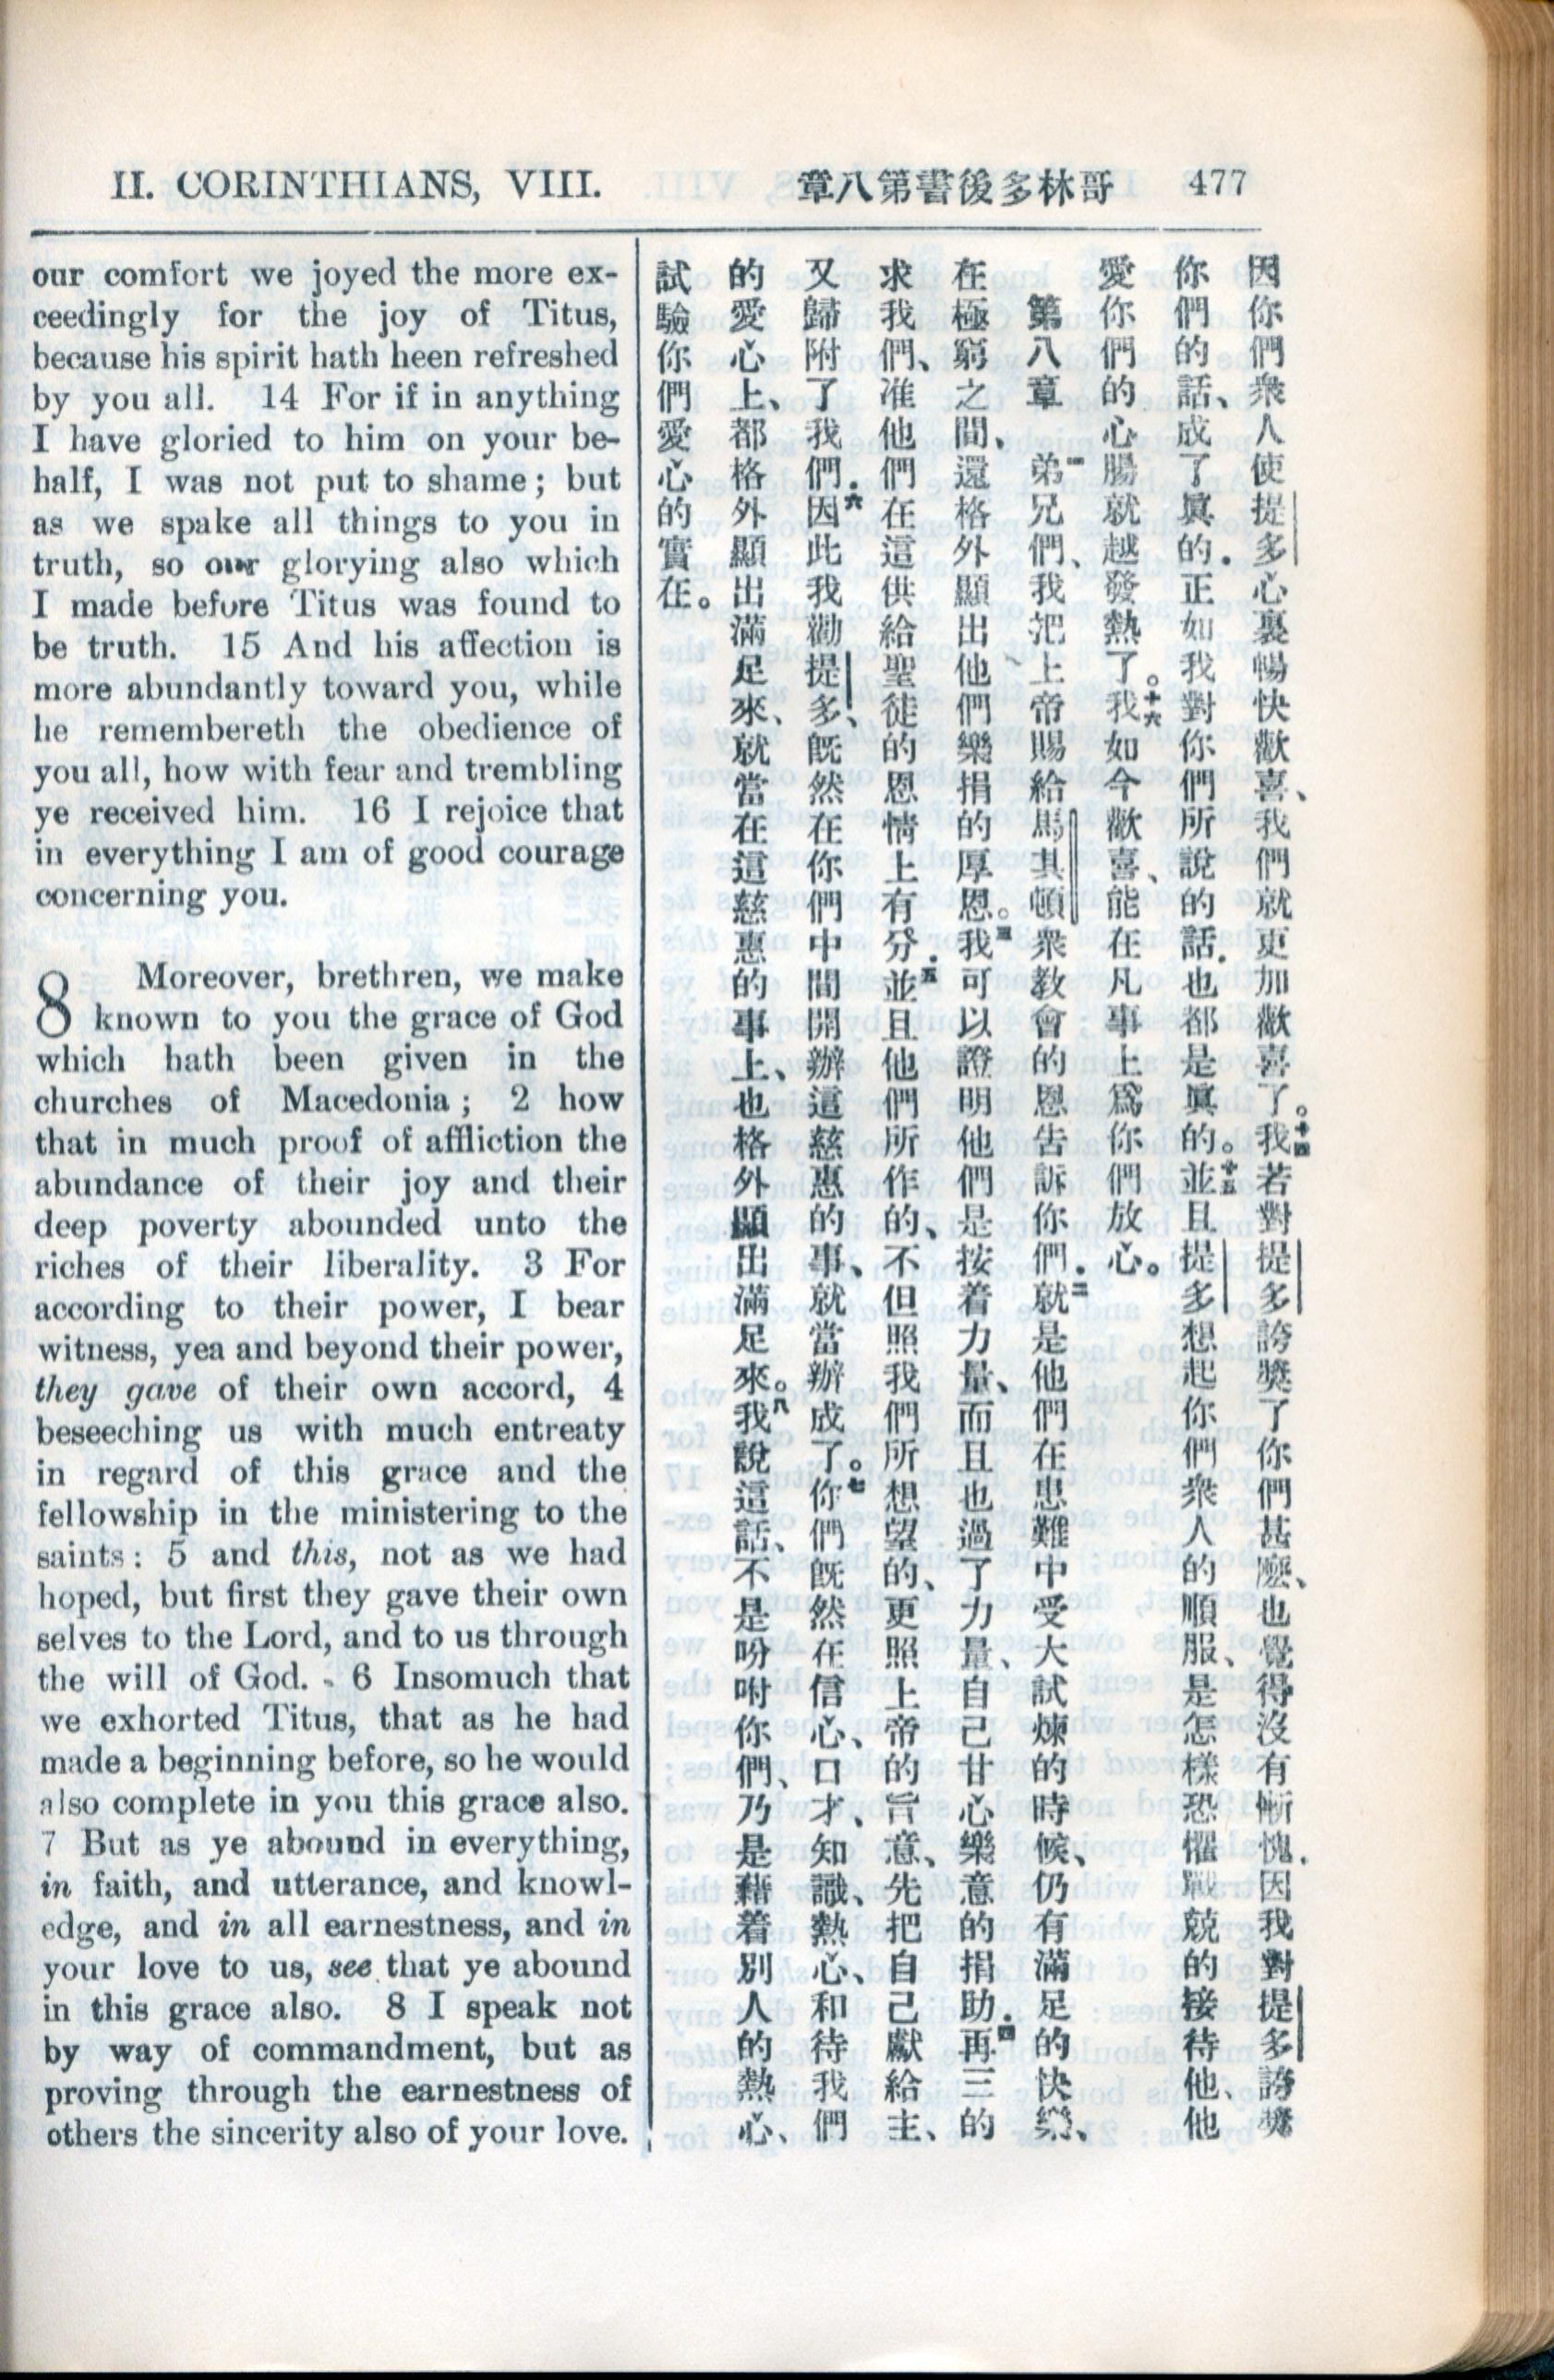 II. CORINTHIANS, VIII.
章八第書後多林哥 477
our comfort we joyed the more ex-
ceedingly for the joy of Titus,
because his spirit hath heen refreshed
by you all. 14 For if in anything
I have gloried to him on your be-
half, I was not put to shame; but
as we spake all things to you in
truth, so our glorying also which
I made before Titus was found to
be truth. 15 And his affection is
more abundantly toward you, while
he remembereth the obedience of
you all, how with fear and trembling
ye received him. 16 I rejoice that
in everything I am of good courage
concerning you.
8 Moreover, brethren, we make
known to you the grace of God
which hath been given in the
churches of Macedonia; 2 how
that in much proof of affliction the
abundance of their joy and their
deep poverty abounded unto the
riches of their liberality. 3 For
according to their power, I bear
witness, yea and beyond their power,
they gave of their own accord, 4
beseeching us with much entreaty
in regard of this grace and the
fellowship in the ministering to the
saints: 5 and this, not as we had
hoped, but first they gave their own
selves to the Lord, and to us through
the will of God. 6 Insomuch that
we exhorted Titus, that as he had
made a beginning before, so he would
also complete in you this grace also.
7 But as ye abound in everything,
in faith, and utterance, and knowl-
edge, and in all earnestness, and in
your love to us, see that ye abound
in this grace also. 8 I speak not
by way of commandment, but as
proving through the earnestness of
others the sincerity also of your love.
因你們衆人使提多心裏暢快歡喜、我們就更加歡喜了。十四我若對提多誇獎了你們甚麼、也覺得沒有慚愧．因我對提多誇獎
你們的話、成了眞的．正如我對你們所說的話．也都是眞的。十五並且提多想起你們衆人的順服、是怎樣恐懼戰兢的接待他、他
愛你們的心腸就越發熱了。十六我如今歡喜、能在凡事上爲你們放心。
第八章 一弟兄們、我把上帝賜給馬其頓衆教會的恩告訴你們．二就是他們在患難中受大試煉的時候、仍有滿足的快樂、
在極窮之間、還格外顯出他們樂捐的厚恩。三我可以證明他們是按着力量、而且也過了力量、自己甘心樂意的捐助．四再三的
求我們、准他們在這供給聖徒的恩情上有分．五並且他們所作的、不但照我們所想望的、更照上帝的旨意、先把自己獻給主、
又歸附了我們．六因此我勸提多、旣然在你們中間開辦這慈惠的事、就當辦成了。七你們旣然在信心、口才、知識、熱心、和待我們
的愛心上、都格外顯出滿足來、就當在這慈惠的事上、也格外顯出滿足來。八我說這話、不是吩咐你們、乃是藉着別人的熱心、
試驗你們愛心的實在。